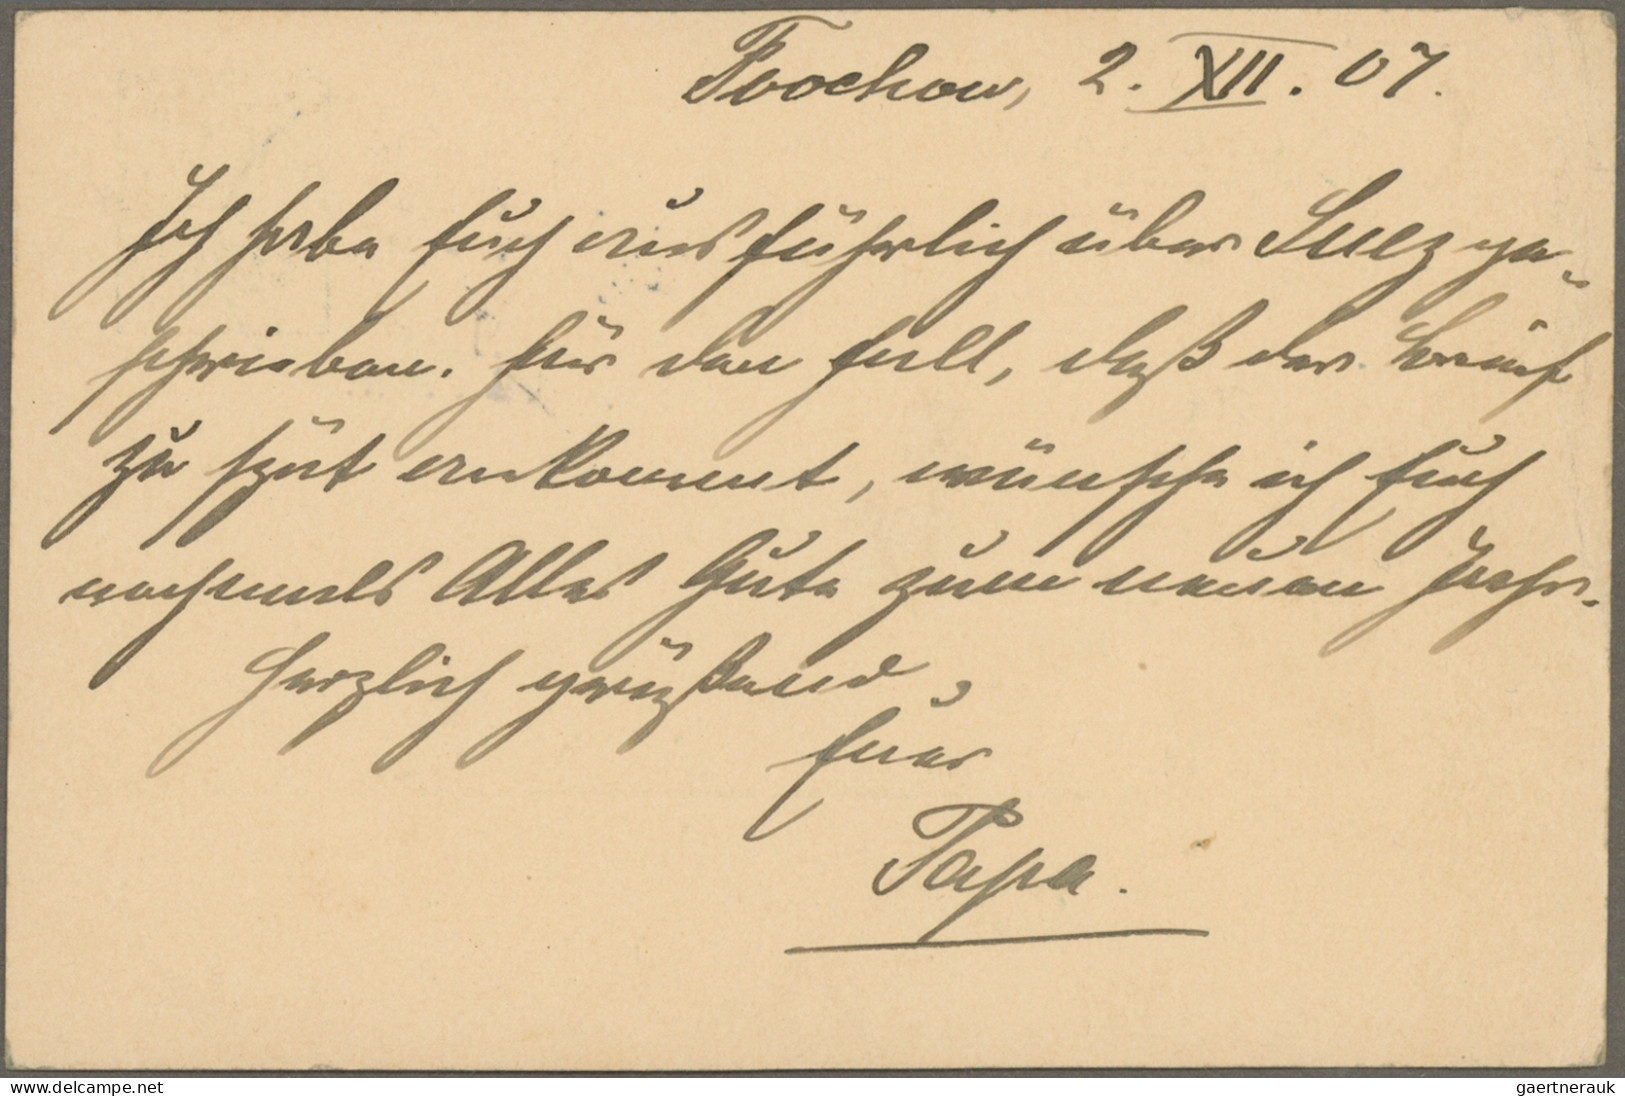 Foochow, 2. XII. 07.
Ich habe Euch ausführlich über Suez ge-
schrieben. Für den Fall, daß der Brief
zu spät ankommt, wünsche ich Euch
nochmals Alles Gute zum neuen Jahr.
Herzlich grüßend,
Euer
Papa.
delcampe.net
gaertnerauk